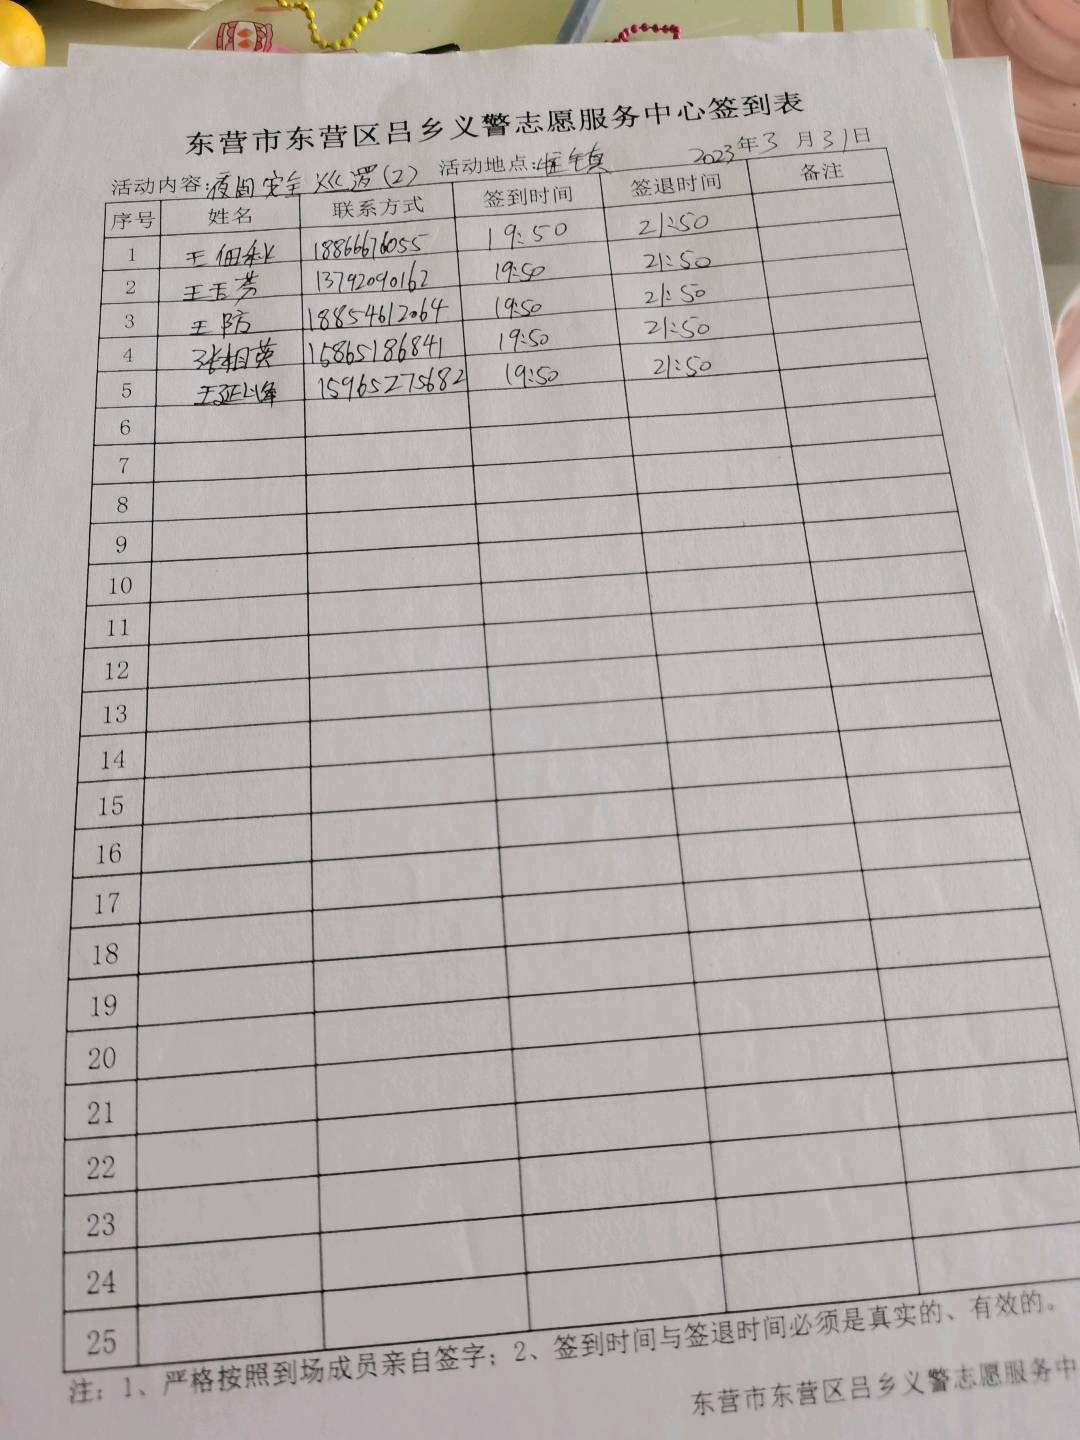 东营市东营区吕乡义警志愿服务中心签到表
活动内容:夜间安全巡逻(2) 活动地点:牛庄镇 2023年3月31日
序号 姓名 联系方式 签到时间 签退时间 备注
1 王佃秋 18866676055 19:50 21:50
2 王玉芳 13792090162 19:50 21:50
3 王防 18854612064 19:50 21:50
4 张相英 15865186841 19:50 21:50
5 王延峰 15965275682 19:50 21:50
6
7
8
9
10
11
12
13
14
15
16
17
18
19
20
21
22
23
24
25
注：1、严格按照到场成员亲自签字；2、签到时间与签退时间必须是真实的、有效的。
东营市东营区吕乡义警志愿服务中